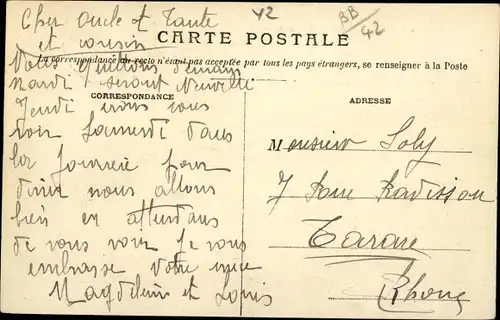 Cher oncle et Tante
et cousin
42
BB
42
CARTE POSTALE
La correspondance au recto n'étant pas acceptée par tous les pays étrangers, se renseigner à la Poste
Nous quittons demain
mardi
CORRESPONDANCE
ADRESSE
Jeudi irons vous
voir Samedi dans
la journée pour
diner nous allons
bien en attendans
de vous voir Je vous
embrasse Votre niece
et Louis
Monsieur Soly
7 Rue Radisson
Tarare
Rhone